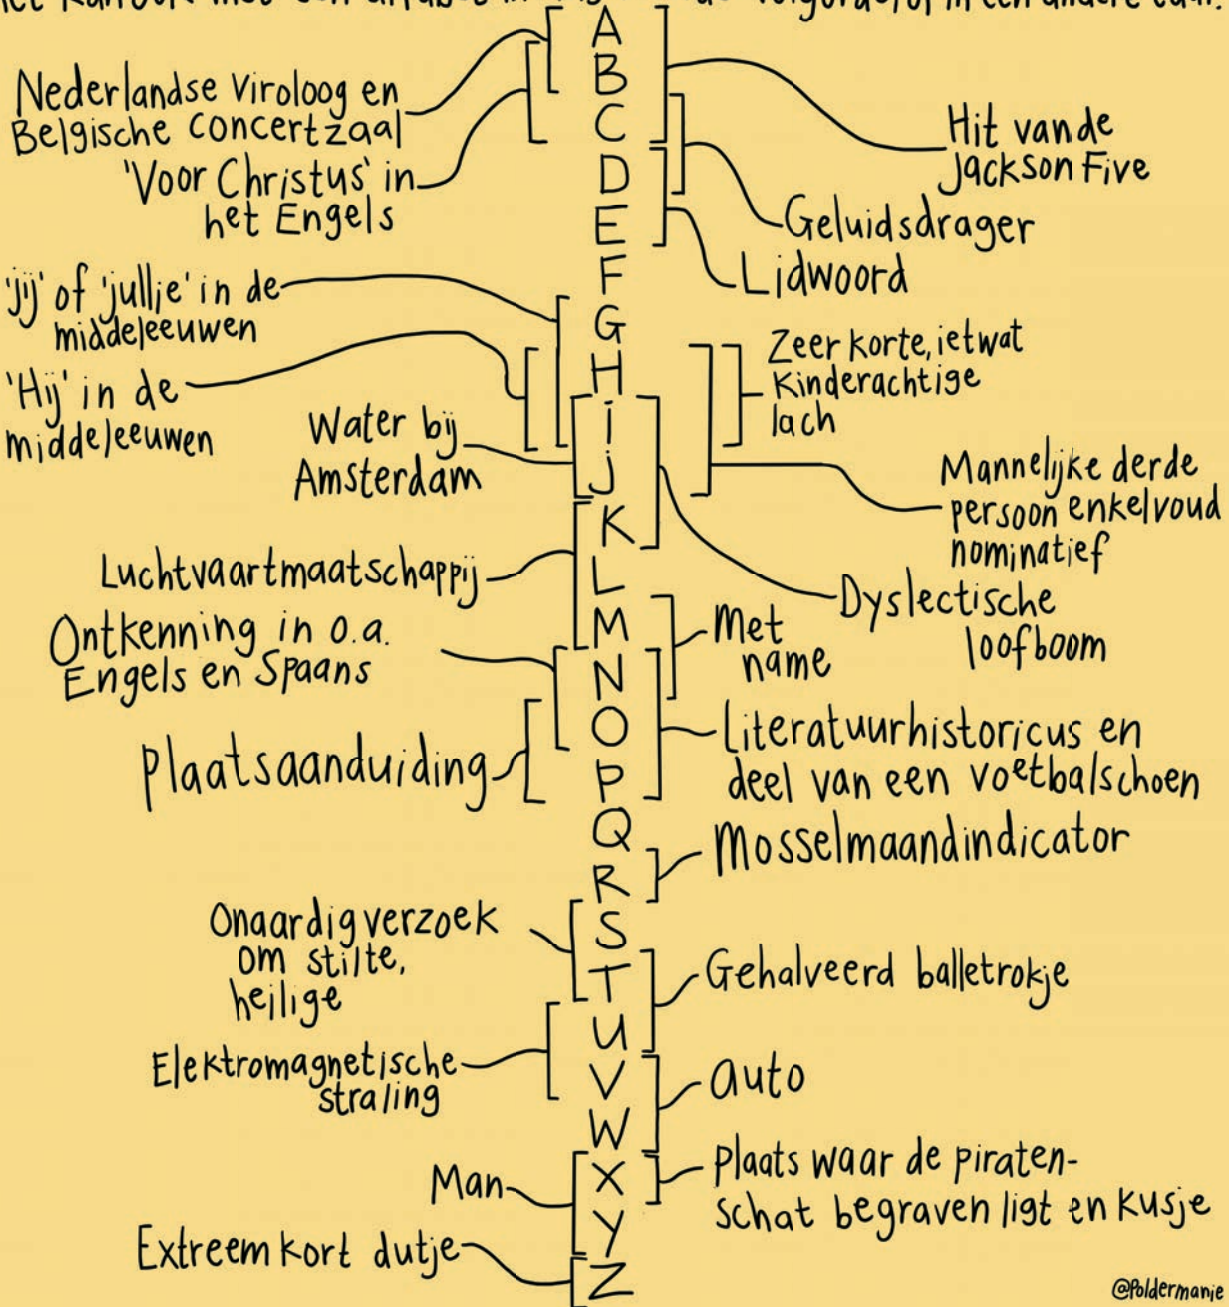 A
B
C
D
E
F
G
H
i
j
K
L
M
N
O
P
Q
R
S
T
U
V
W
X
Y
Z
Nederlandse viroloog en
Belgische concertzaal
'Voor Christus' in
het Engels
'jij' of 'jullie' in de
middeleeuwen
'Hij' in de
middeleeuwen
Water bij
Amsterdam
Luchtvaartmaatschappij
Ontkenning in o.a.
Engels en Spaans
Plaatsaanduiding
Onaardig verzoek
om stilte,
heilige
Elektromagnetische
straling
Man
Extreem kort dutje
Hit van de
Jackson Five
Geluidsdrager
Lidwoord
Zeer korte, ietwat
kinderachtige
lach
Mannelijke derde
persoon enkelvoud
nominatief
Dyslectische
loofboom
Met
name
Literatuurhistoricus en
deel van een voetbalschoen
Mosselmaandindicator
Gehalveerd balletrokje
auto
Plaats waar de piraten-
schat begraven ligt en kusje
@Poldermanie